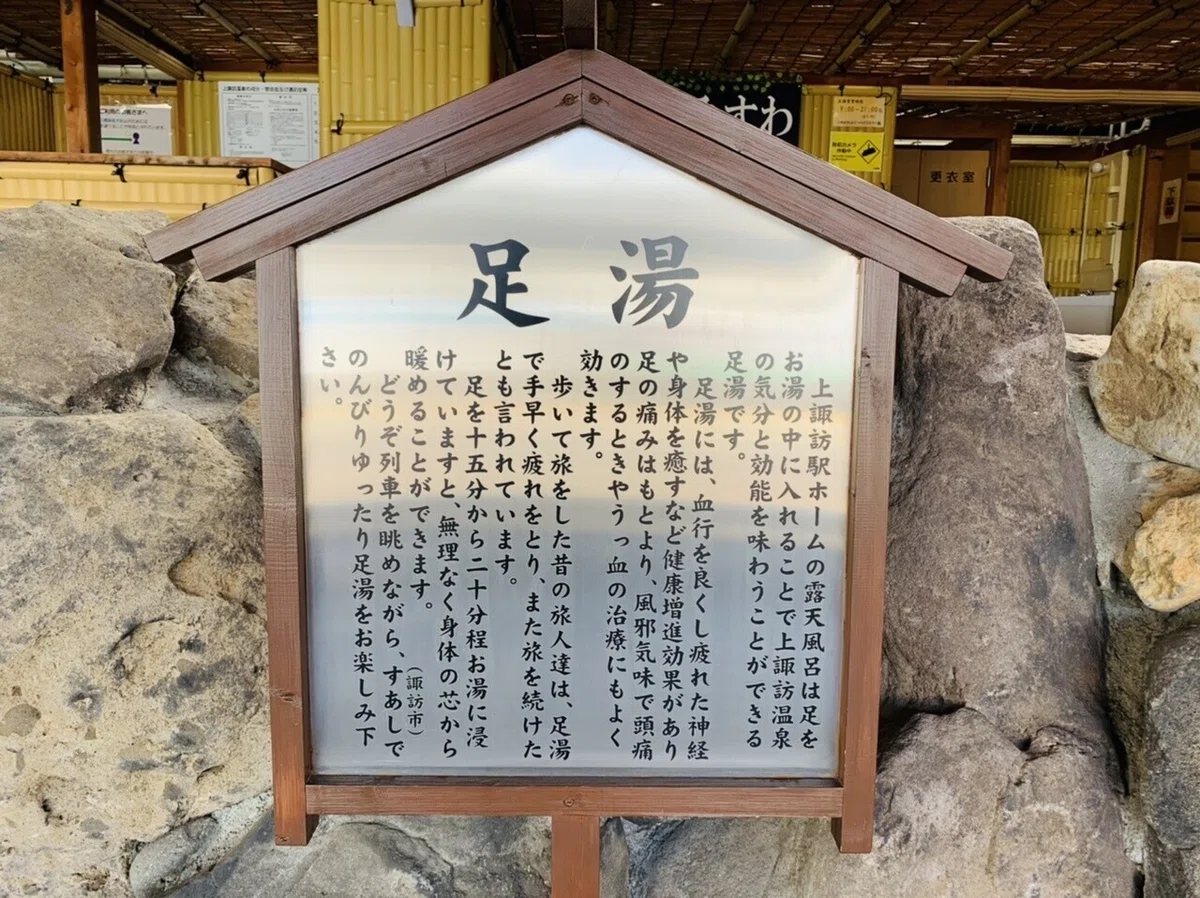 足湯
上諏訪駅ホームの露天風呂は足を
お湯の中に入れることで上諏訪温泉
の気分と効能を味わうことができる
足湯です。
足湯には、血行を良くし疲れた神経
や身体を癒すなど健康増進効果があり
足の痛みはもとより、風邪気味で頭痛
のするときやうっ血の治療にもよく
効きます。
歩いて旅をした昔の旅人達は、足湯
で手早く疲れをとり、また旅を続けた
とも言われています。
足を十五分から二十分程お湯に浸
けていますと、無理なく身体の芯から
暖めることができます。
どうぞ列車を眺めながら、すあしで
のんびりゆったり足湯をお楽しみ下
さい。
(諏訪市)
すわ
9:00~21:00
更衣室